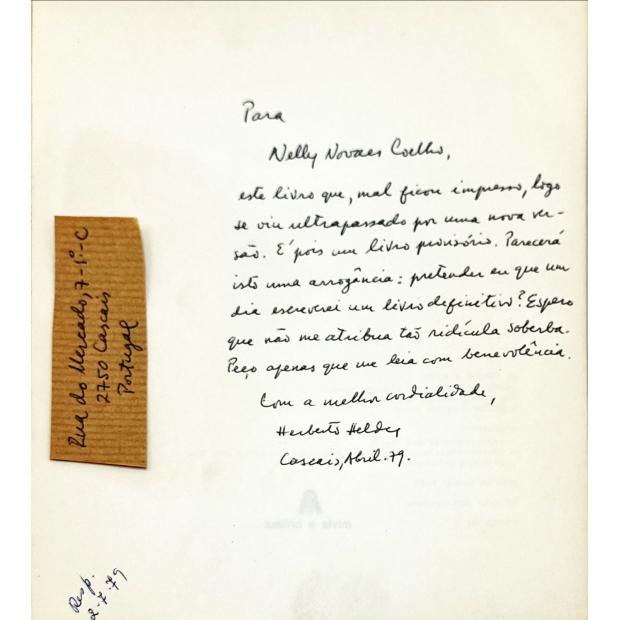 Para
Nelly Novaes Coelho,
este livro que, mal ficou impresso, logo
se viu ultrapassado por uma nova ver-
são. É pois um livro provisório. Parecerá
isto uma arrogância: pretender eu que um
dia escreverei um livro definitivo? Espero
que não me atribua tão ridícula soberba.
Peço apenas que me leia com benevolência.
Com a melhor cordialidade,
Herberto Helder
Cascais, Abril. 79.
Rua do Mercado, 7-1º-C
2750 Cascais
Portugal
Resp.
2-7-79